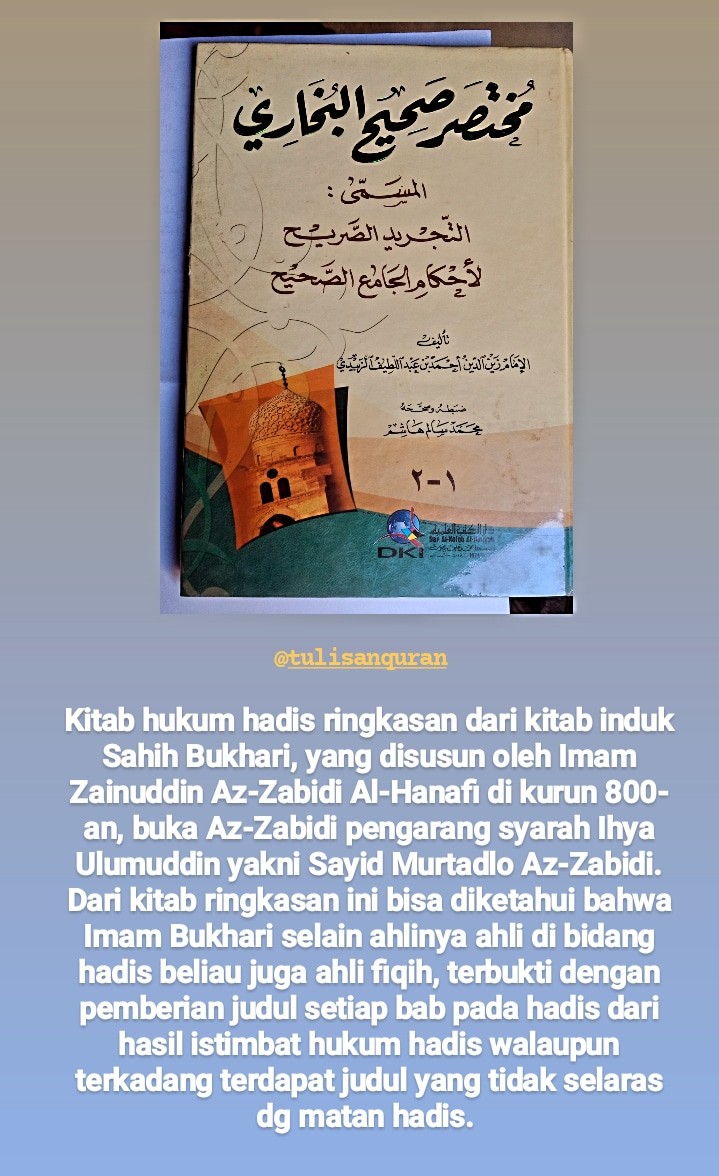 مُختصَر صَحِيحُ البُخَارِي
المسَمّى :
التّجريد الصَّريح
لأحكام الجَامع الصَّحيح
تأليف
الإمَام زين الدّين أحمَد بن عَبد اللّطيف الزّبيدي
ضبَطَه وصحّحَه
محمّد سَالم هَاشم
١-٢
دار الكتب العلمية
Dar Al-Kotob Al-Ilmiyah
DKi
@tulisanquran
Kitab hukum hadis ringkasan dari kitab induk
Sahih Bukhari, yang disusun oleh Imam
Zainuddin Az-Zabidi Al-Hanafi di kurun 800-
an, buka Az-Zabidi pengarang syarah Ihya
Ulumuddin yakni Sayid Murtadlo Az-Zabidi.
Dari kitab ringkasan ini bisa diketahui bahwa
Imam Bukhari selain ahlinya ahli di bidang
hadis beliau juga ahli fiqih, terbukti dengan
pemberian judul setiap bab pada hadis dari
hasil istimbat hukum hadis walaupun
terkadang terdapat judul yang tidak selaras
dg matan hadis.